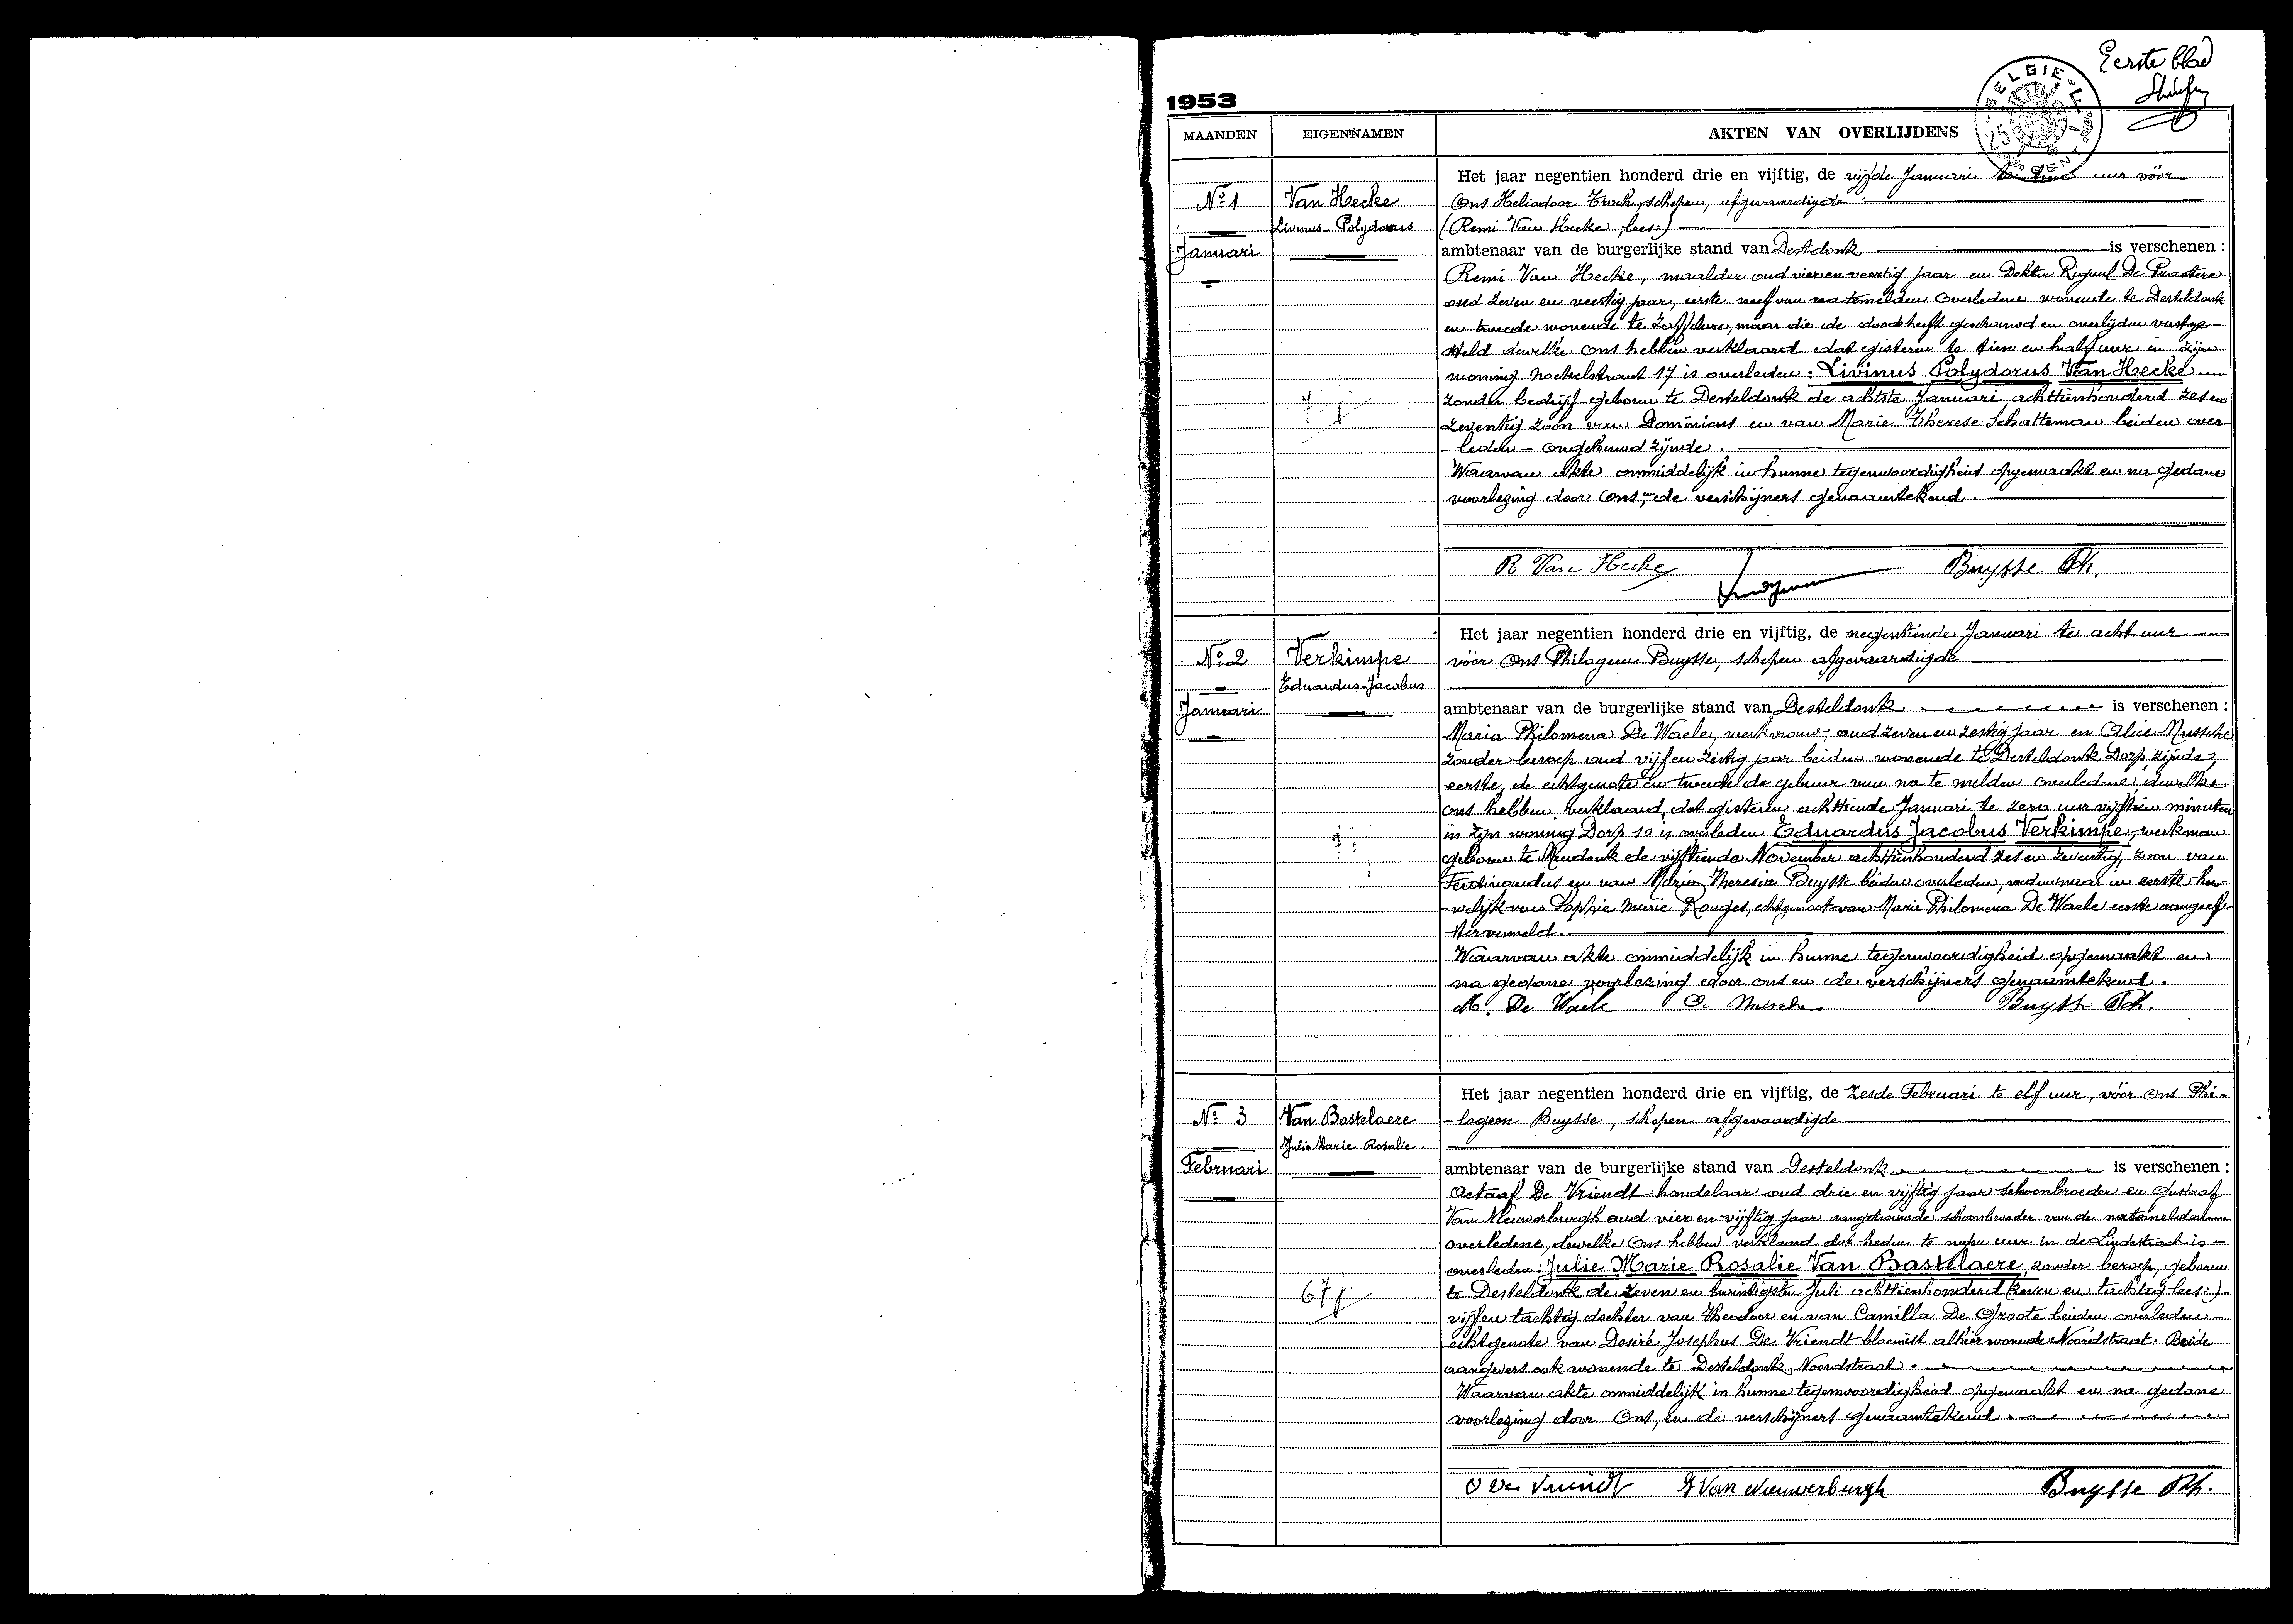 Eerste blad
1953
BELGIE
MAANDEN EIGENNAMEN AKTEN VAN OVERLIJDENS
Het jaar negentien honderd drie en vijftig, de vijfde Januari te tien uur vóór
No 1 Van Hecke Ons Heliodoor Troch, schepen, afgevaardigde
Livinus-Polydorus (Remi Van Hecke, lees:)
Januari ambtenaar van de burgerlijke stand van Desteldonk is verschenen :
Remi Van Hecke, maalder oud vier en veertig jaar en Dokter De Praetere
oud zeven en veertig jaar, eerste neef van na temelden overledene wonende te Desteldonk
en tweede wonende te Zaffelare, maar die de dood heeft geschouwd en overlijden vastge-
steld dewelke ons hebben verklaard dat gisteren te tien en half uur in zijn
woning 17 is overleden : Livinus Polydorus Van Hecke
zonder bedrijf geboren te Desteldonk de achtste Januari achttienhonderd zes en
zeventig zoon van Dominicus en van Marie Therese Schatteman beiden over-
leden - ongehuwd zijnde.
Waarvan akte onmiddelijk in hunne tegenwoordigheid opgemaakt en na gedane
voorlezing door Ons, en de verschijners genaamtekend.
R Van Hecke Buysse Ph.
Het jaar negentien honderd drie en vijftig, de negentiende Januari te acht uur
No 2 Verkimpe vóór Ons Philogeen Buysse, schepen afgevaardigde
Eduardus-Jacobus
Januari ambtenaar van de burgerlijke stand van Desteldonk is verschenen :
Maria Philomena De Waele, werkvrouw, oud zeven en zestig jaar en Alice Mussche
zonder beroep oud vijf en zestig jaar beiden wonende te Desteldonk Dorp, zijnde,
eerste, de echtgenote en tweede de gebuur van na te melden overledene, dewelke
ons hebben verklaard, dat gisteren achttiende Januari te zero uur vijftien minuten
in zijn woning Dorp 10 is overleden Eduardus Jacobus Verkimpe, werkman
geboren te Mendonk de vijftiende November achttienhonderd zes en zeventig, zoon van
Ferdinandus en van Maria Theresia Buysse beiden overleden, weduwnaar in eerste hu-
welijk van Sophie Marie Rouges, echtgenoot van Maria Philomena De Waele eerste aangeef-
ster vermeld.
Waarvan akte onmiddelijk in hunne tegenwoordigheid opgemaakt en
na gedane voorlezing door ons en de verschijners genaamtekend.
M. De Waele A. Mussche Buysse Ph.
Het jaar negentien honderd drie en vijftig, de zesde Februari te elf uur, vóór Ons Phi-
No 3 Van Bastelaere -logeen Buysse, schepen afgevaardigde
Julie Marie Rosalie
Februari ambtenaar van de burgerlijke stand van Desteldonk is verschenen :
Octaaf De Vriendt handelaar oud drie en vijftig jaar schoonbroeder en Gustaaf
Van Nieuwerburgh oud vier en vijftig jaar aangetrouwde schoonbroeder van de natemelden
overledene, dewelke Ons hebben verklaard dat heden te negen uur in de Lindestraat is
overleden : Julie Marie Rosalie Van Bastelaere, zonder beroep, geboren
67 te Desteldonk de zeven en twintigsten Juli achttienhonderd (zeven en tachtig lees:)
vijf en tachtig dochter van Theodoor en van Camilla De Groote beiden overleden
echtgenote van Desiré Josephus De Vriendt bloemist alhier wonende Noordstraat. Beide
aangevers ook wonende te Desteldonk Noordstraat.
Waarvan akte onmiddelijk in hunne tegenwoordigheid opgemaakt en na gedane
voorlezing door Ons, en de verschijners genaamtekend.
O De Vriendt G Van Nieuwerburgh Buysse Ph.